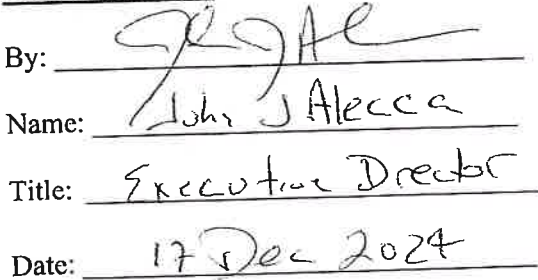 By:
Name: John J Alecca
Title: Executive Director
Date: 17 Dec 2024